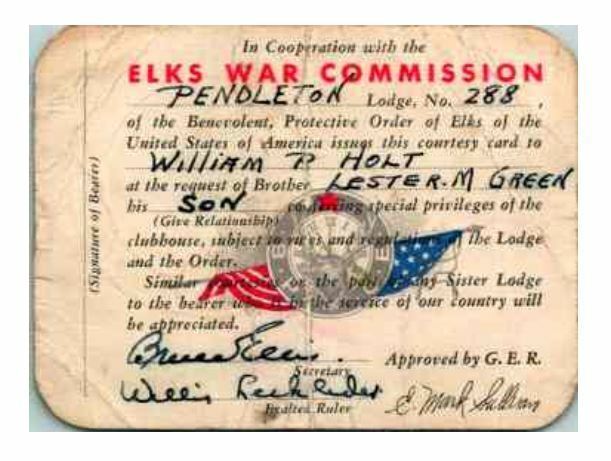 In Cooperation with the
ELKS WAR COMMISSION
PENDLETON Lodge, No. 288,
of the Benevolent, Protective Order of Elks of the
United States of America issues this courtesy card to
WILLIAM P. HOLT
at the request of Brother LESTER. M GREEN
his SON conferring special privileges of the
(Give Relationship)
clubhouse, subject to rules and regulations of the Lodge
and the Order.
Similar courtesies on the part of any Sister Lodge
to the bearer while in the service of our country will
be appreciated.
Bruce Ellis. Approved by G. E. R.
Secretary
Willis
Exalted Ruler E. Mark Sullivan
(Signature of Bearer)